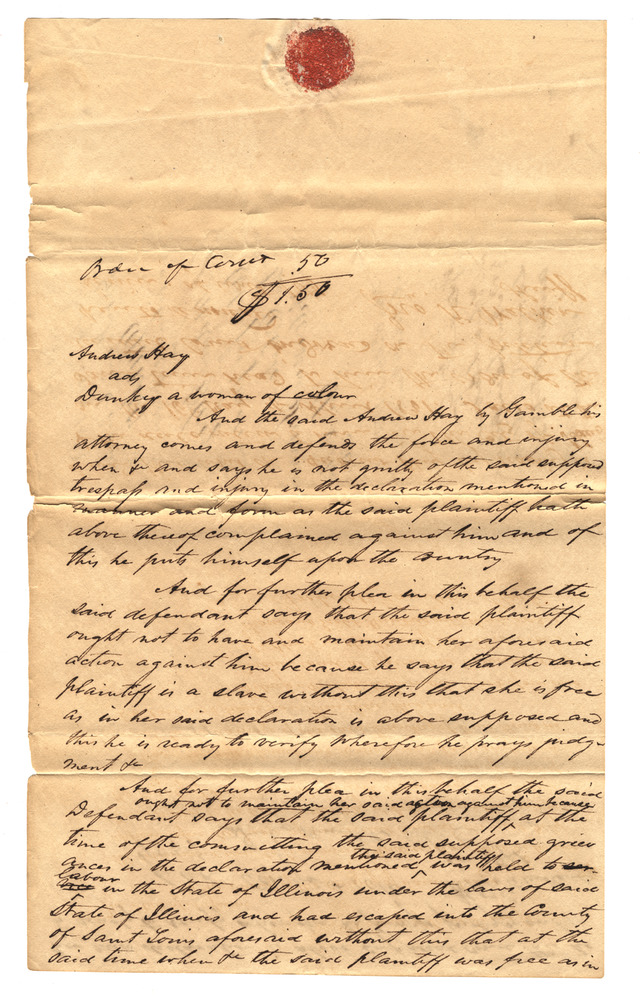 Order of Court .50
$1.50
Andrew Hay
ads
Dunkey a woman of colour
And the said Andrew Hay by Gamble his
attorney comes and defends the force and injury
when &c and says he is not guilty of the said supposed
trespass and injury in the declaration mentioned in
manner and form as the said plaintiff hath
above thereof complained against him and of
this he puts himself upon the Country
And for further plea in this behalf the
said defendant says that the said plaintiff
ought not to have and maintain her aforesaid
action against him because he says that the said
plaintiff is a slave without this that she is free
as in her said declaration is above supposed and
this he is ready to verify Wherefore he prays judg-
ment &c
And for further plea in this behalf the said
ought not to maintain her said action against him because
Defendant says that the said plaintiff ^ at the
time of the committing the said supposed griev
the said plaintiff
ances in the declaration mentioned ^ was held to ser-
labour
vice in the State of Illinois under the laws of said
State of Illinois and had escaped into the County
of Saint Louis aforesaid without this that at the
said time when &c the said plaintiff was free as in